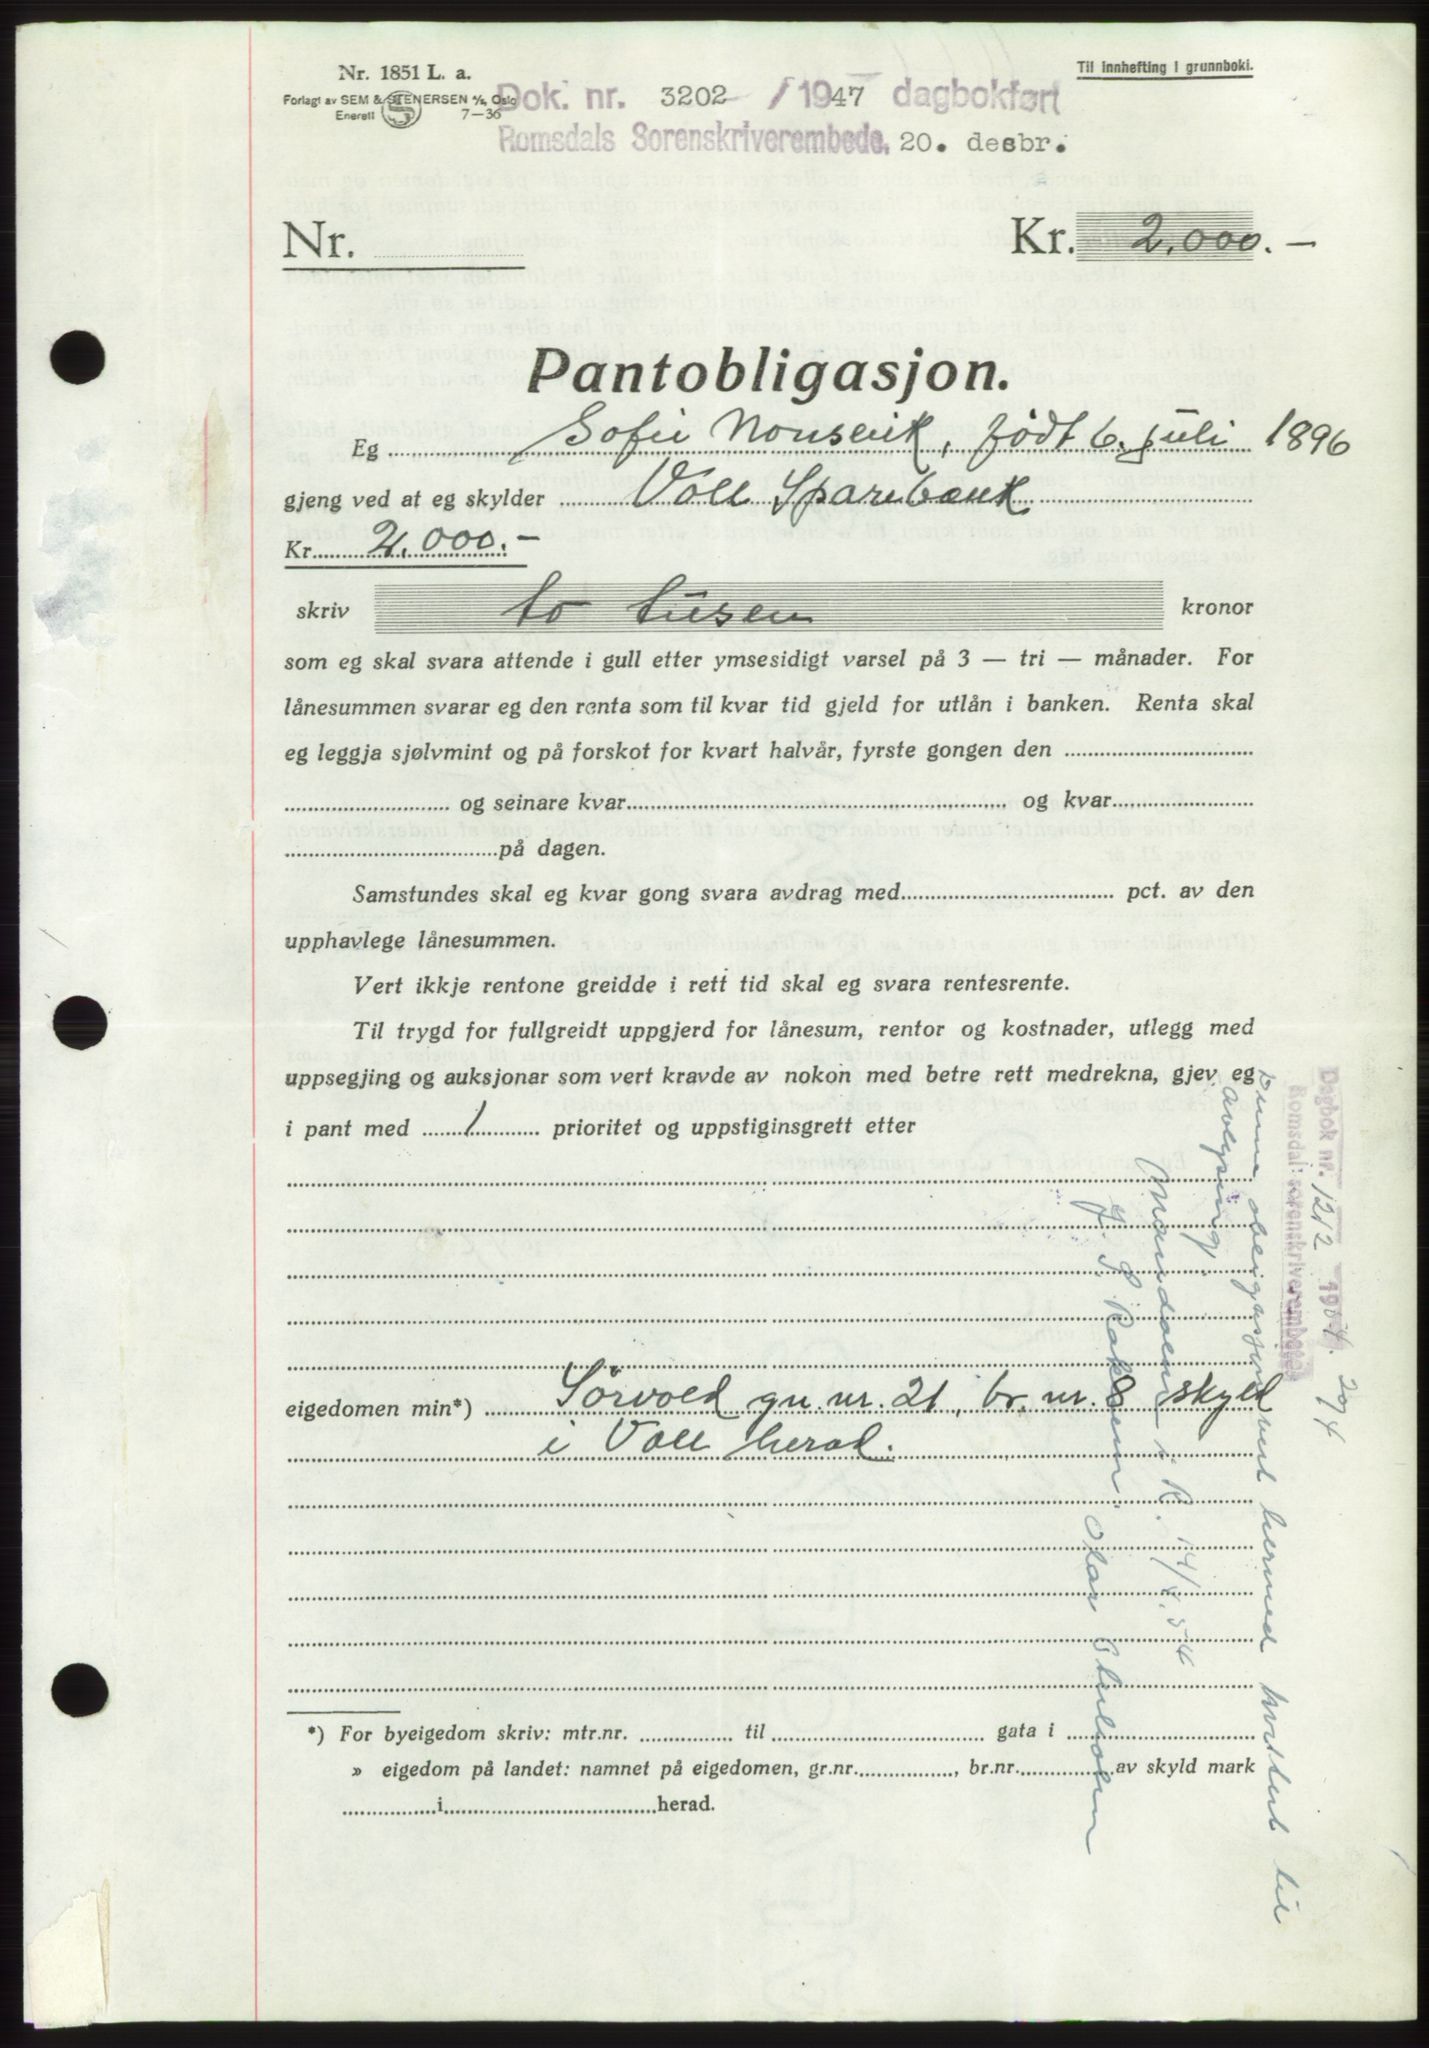 Nr. 1851 L. a.
Forlagt av SEM & STENERSEN A/S, Oslo
Enerett 7—36
Til innhefting i grunnboki.
Dok. nr. 3202 / 1947 dagbokført
Romsdals Sorenskriverembede. 20. desbr.
Nr.
Kr. 2.000.—
Pantobligasjon.
Eg Sofie Monsevik, født 6. juli 1896
gjeng ved at eg skylder Voll Sparebank
Kr. 2.000.—
skriv to tusen kronor
som eg skal svara attende i gull etter ymsesidigt varsel på 3 — tri — månader. For
lånesummen svarar eg den renta som til kvar tid gjeld for utlån i banken. Renta skal
eg leggja sjølvmint og på forskot for kvart halvår, fyrste gongen den
og seinare kvar og kvar
på dagen.
Samstundes skal eg kvar gong svara avdrag med pct. av den
upphavlege lånesummen.
Vert ikkje rentone greidde i rett tid skal eg svara rentesrente.
Til trygd for fullgreidt uppgjerd for lånesum, rentor og kostnader, utlegg med
uppsegjing og auksjonar som vert kravde av nokon med betre rett medrekna, gjev eg
i pant med 1 prioritet og uppstiginsgrett etter
eigedomen min*) Sörvold gn. nr. 21, br. nr. 8 skyld
i Voll herad.
*) For byeigedom skriv: mtr.nr. til gata i
» eigedom på landet: namnet på eigedomen, gr.nr. , br.nr. av skyld mark
i herad.
Dagbok nr. 1212 1954. 20/4
Romsdal sorenskriverembede
Denne obligasjon vert hermed kvittert til
avlysing.
i R. 14/4.54